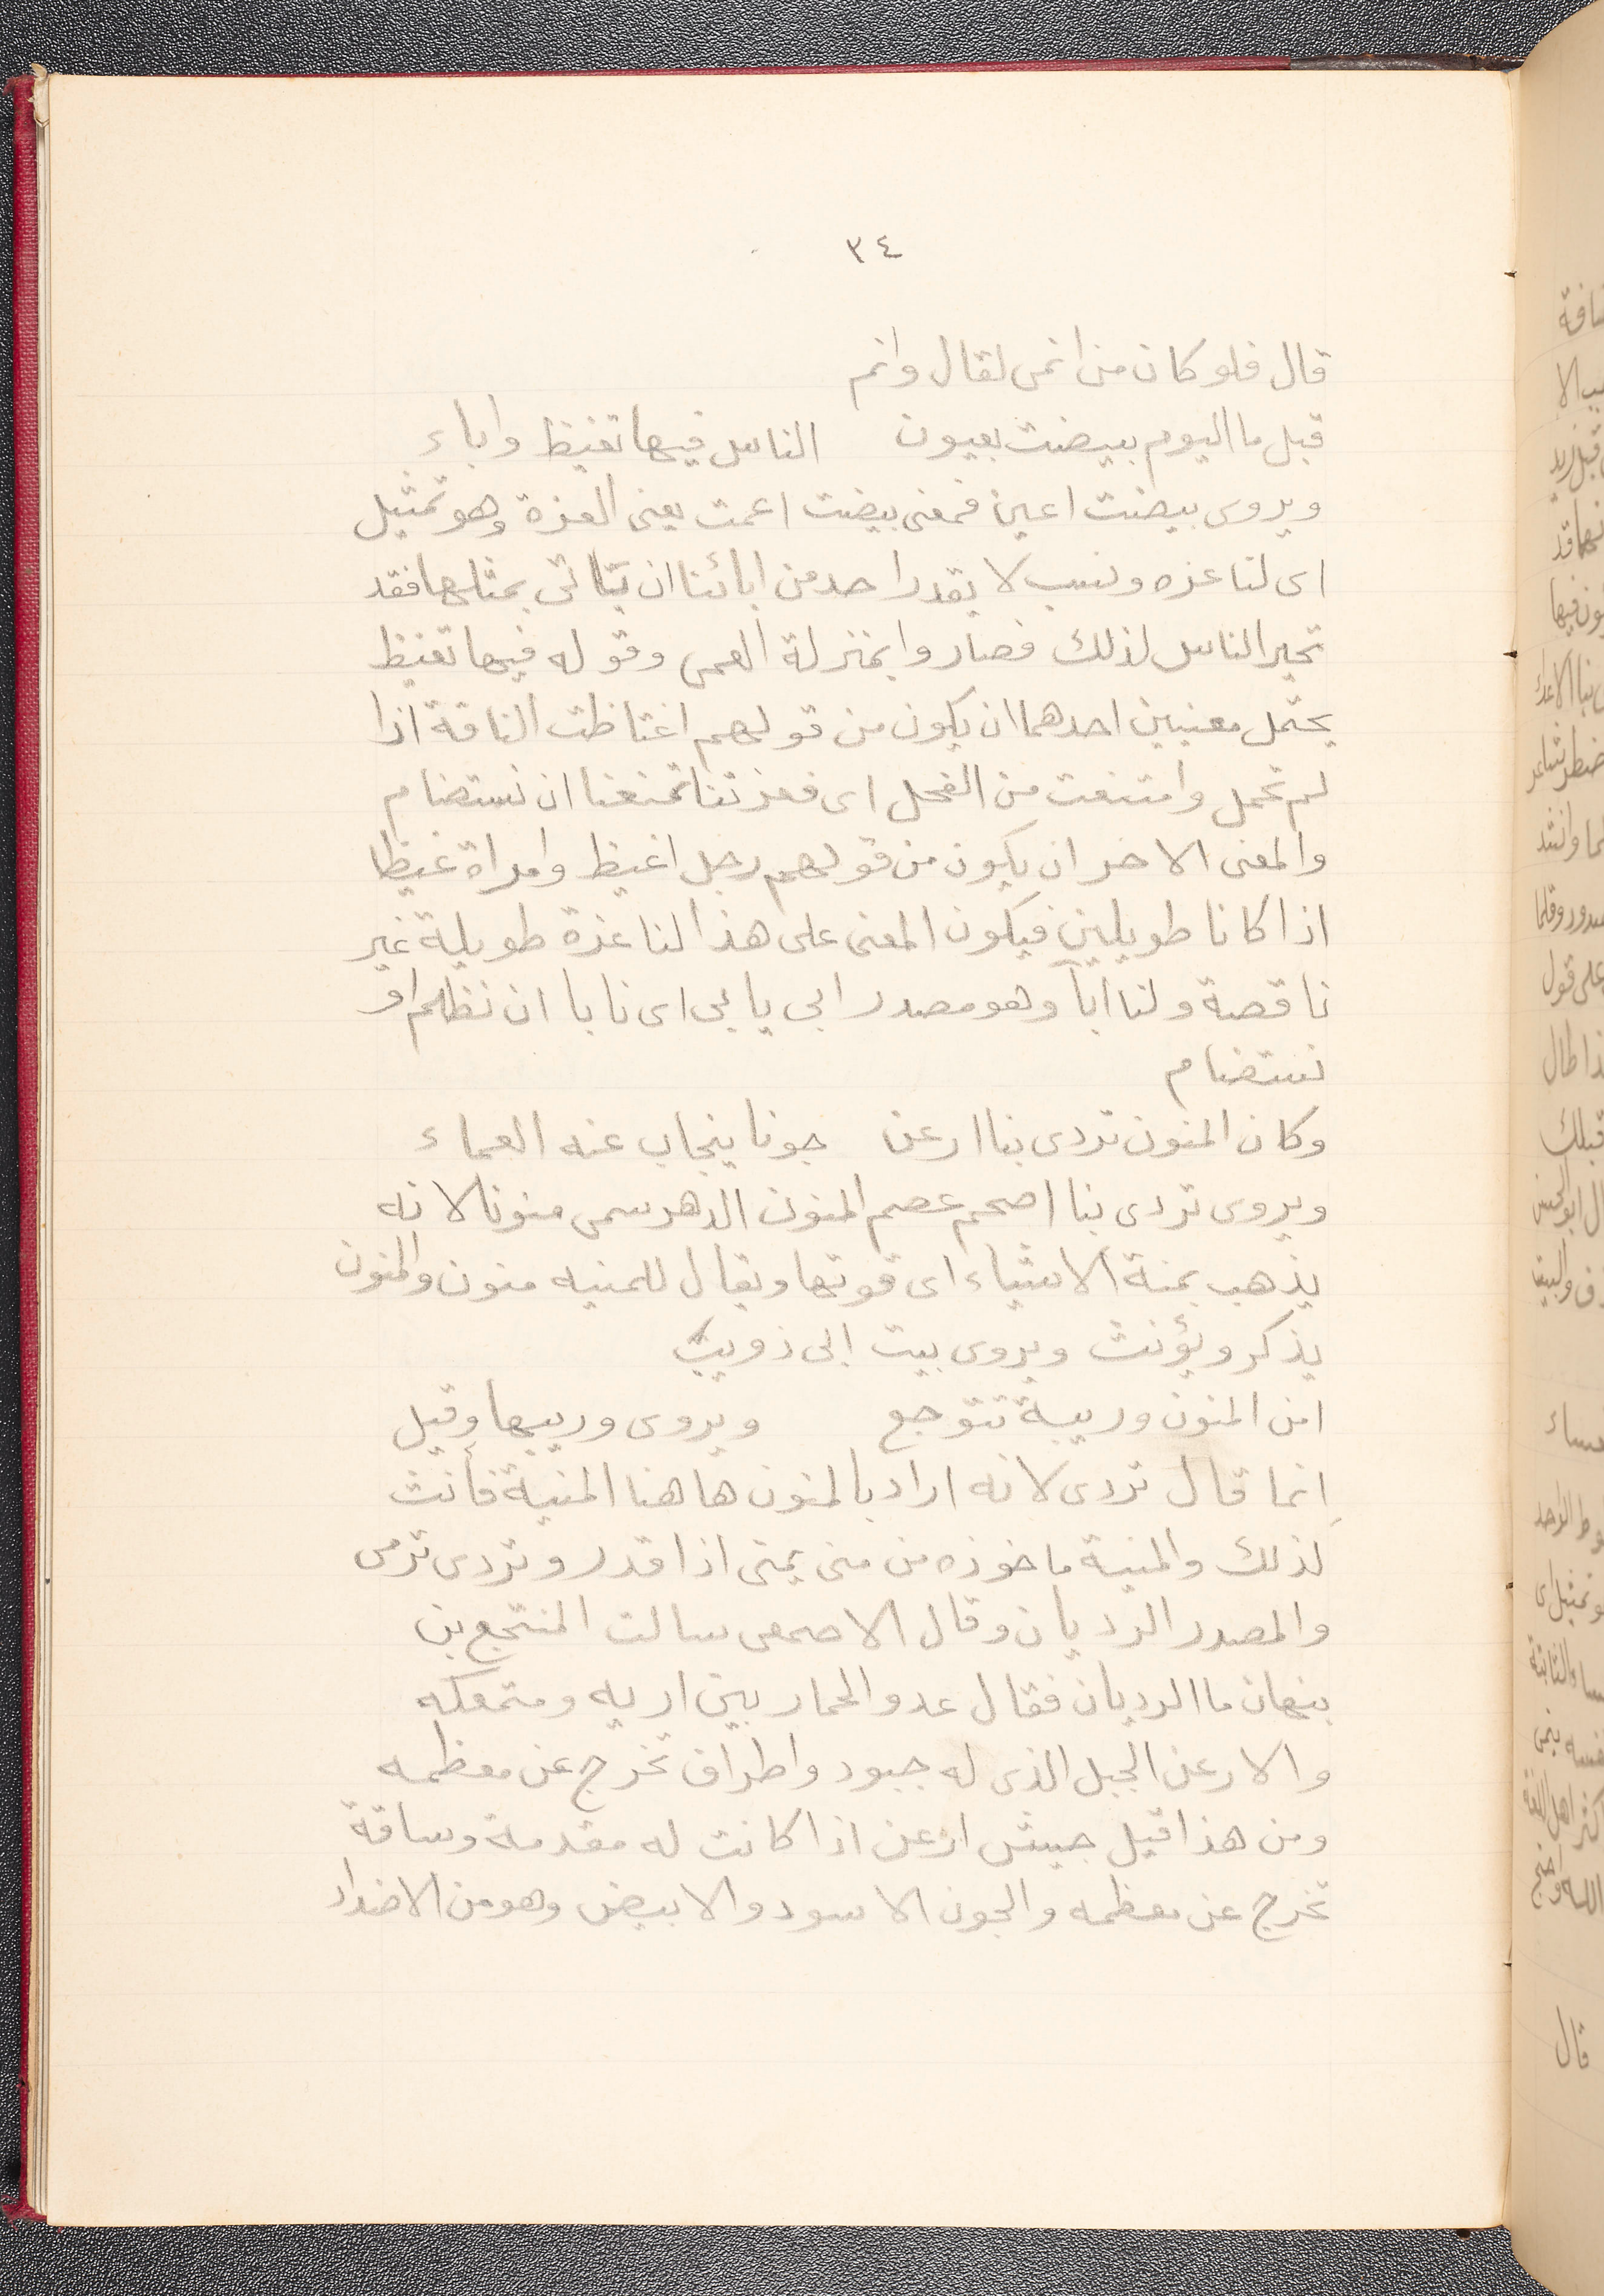 ٣٤
قال فلو كان من انمى لقال وانم
قبل ما اليوم بيضت بعيون الناس فيها تغيظ واباء
ويروى بيضت اعين فمعنى بيضت اعمت يعنى العزة وهو تمثيل
اى لنا عزه ونسب لا يقدر احد من ابائنا ان يتاتى بمثلها فقد
تحير الناس لذلك فصاروا بمنزلة العمى وقوله فيها تغيظ
يحتمل معنيين احدهما ان يكون من قولهم اغتاظت الناقة اذا
لم تحمل وامتنعت من الفحل اى فعزتنا تمنعنا ان نستضام
والمعنى الاخر ان يكون من قولهم رجل اغيظ وامراة غيظا
اذا كانا طويلين فيكون المعنى على هذا لنا عزة طويلة غير
ناقصة ولنا ابآ وهو مصدر ابى يابى اى نابا ان نظلم او
نستضام
وكان المنون تردى بنا ارعن جونا ينجاب عنه العماء
ويروى تردى بنا اصحم عصم المنون الدهر سمى منونا لانه
يذهب بمنة الاشياء اى قوتها ويقال للمنيه منون والمنون
يذكر ويؤنث ويروى بيت ابى ذويب
امن المنون وريبة تتوجع ويروى وريبها وقيل
انما قال تردى لانه اراد بالمنون هاهنا المنية فأنث
لذلك والمنية ماخوذه من منى يمنى اذا قدر وتردى ترمى
والمصدر الرديان وقال الاصمعى سالت المنتجع بن
بنهان ما الرديان فقال عدو الحمار بين اريه ومتمعكه
والارعن الجبل الذى له جبود واطراف تخرج عن معظمه
ومن هذا قيل جيش ارعن اذا كانت له مقدمة وساقة
تخرج عن معظمه والجون الاسود والابيض وهو من الاضداد